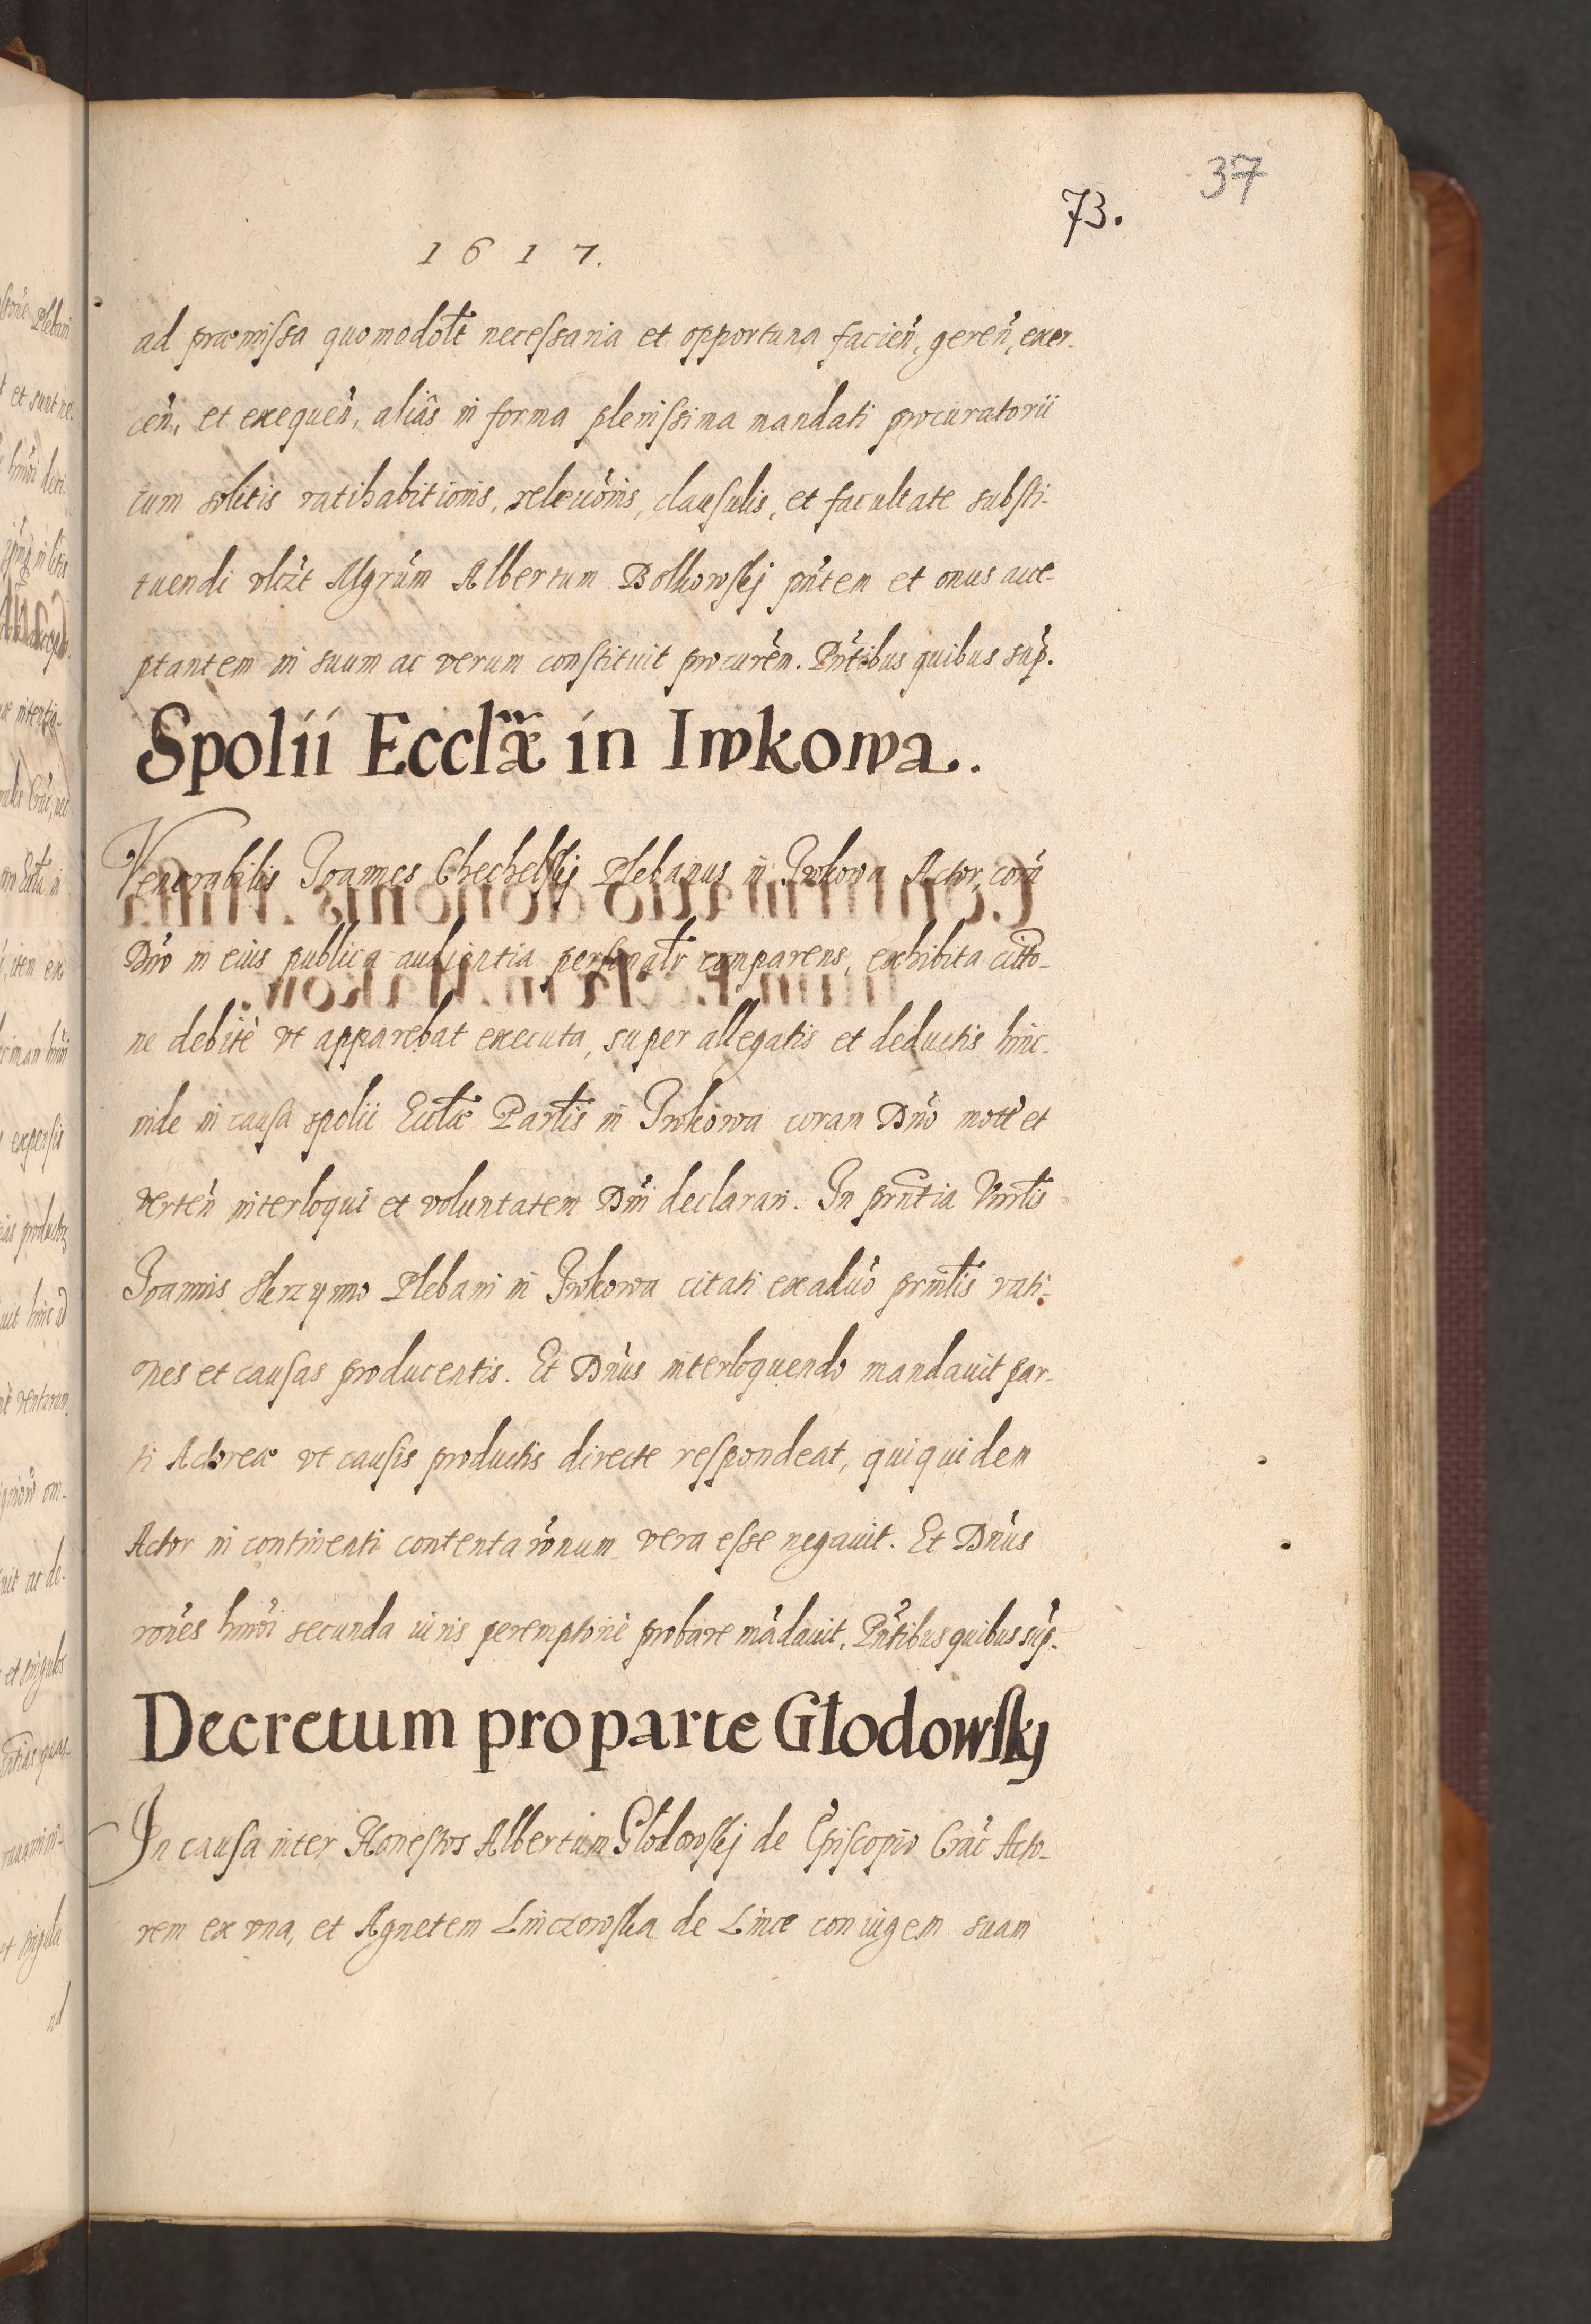 37
73.
1617.
ad præmissa quomodolt necessaria et opportuna facien, geren, exer-
cen, et exequen, aliâs in forma plenissima mandati procuratorii
cum solitis ratihabitionis, releuonis, clausulis, et facultate substi-
tuendi vltzt Mgrum Albertum Bolkowskj pntem et onus acce-
ptantem in suum ac verum constituit procurem. Pntibus quibus sup.
Spolii Ecclæ in Iwkowa.
Venerabilis Joannes Chechelskj Plebanus in Iwkowa Actor, corā
Dno in eius publica audientia personaltr comparens, exhibita citto-
ne debitè vt apparebat executa, super allegatis et deductis hinc-
inde in causa spolii Eccłæ Partis in Iwkowa coram Dno mota et
verten interloqui et voluntatem Dni declarari. In prntia
Joannis Plebani in Iwkowa citati exaduo rati-
ones et causas producentis. Et Dnus interloquendo mandauit par-
ti Actoreæ vt causis productis directe respondeat, quiquidem
Actor in continenti contenta ronum vera esse negauit. Et Dnus
rones hmoi secunda iuris peremptoriè probare mādauit. Pntibus quibus sup.
Decretum pro parte Głodowskj
In causa inter Honestos Albertum Głodowskj de Episcopio Crac Acto-
rem ex vna, et Agnetem Linczowska de Lince coniugem suam